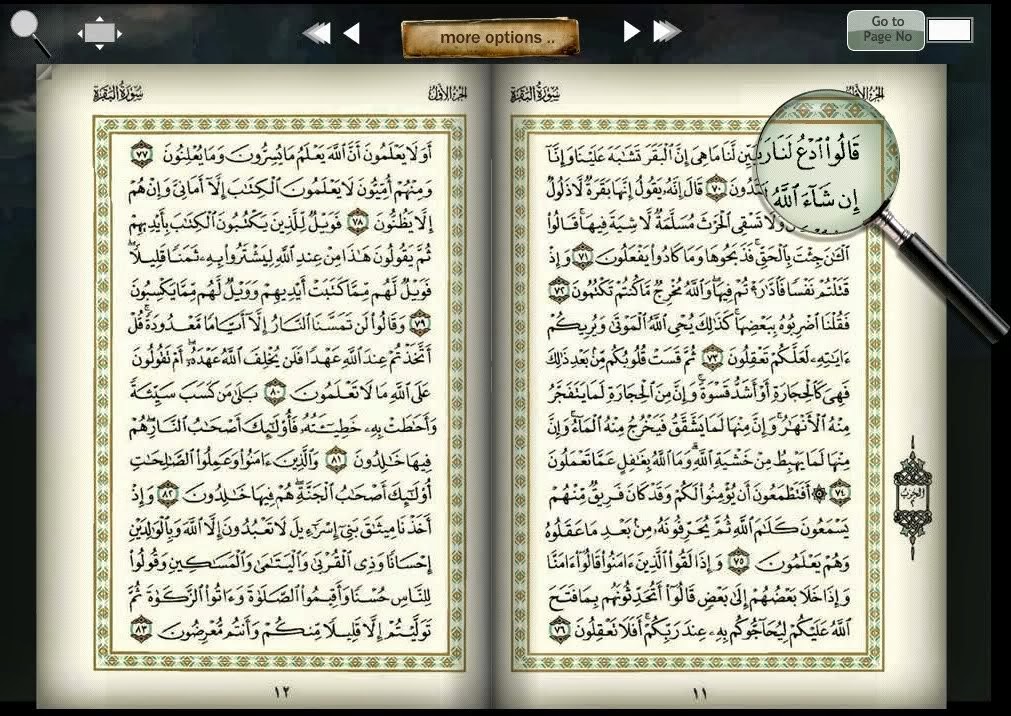 more options ..
Go to
Page No
سُورَةُ البَقَرَةِ
الجُزْءُ الأَوَّلُ
قَالُوا۟ ٱدْعُ لَنَا رَ يِّن لَّنَا مَا هِىَ إِنَّ ٱلْبَقَرَ تَشَـٰبَهَ عَلَيْنَا وَإِنَّآ
إِن شَآءَ ٱللَّهُ تَدُونَ ٧٠ قَالَ إِنَّهُۥ يَقُولُ إِنَّهَا بَقَرَةٌ لَّا ذَلُولٌ
وَلَا تَسْقِى ٱلْحَرْثَ مُسَلَّمَةٌ لَّا شِيَةَ فِيهَا ۚ قَالُوا۟
ٱلْـَٔـٰنَ جِئْتَ بِٱلْحَقِّ ۚ فَذَبَحُوهَا وَمَا كَادُوا۟ يَفْعَلُونَ ٧١ وَإِذْ
قَتَلْتُمْ نَفْسًا فَٱدَّٰرَْٰٔتُمْ فِيهَا ۖ وَٱللَّهُ مُخْرِجٌ مَّا كُنتُمْ تَكْتُمُونَ ٧٢
فَقُلْنَا ٱضْرِبُوهُ بِبَعْضِهَا ۚ كَذَٰلِكَ يُحْىِ ٱللَّهُ ٱلْمَوْتَىٰ وَيُرِيكُمْ
ءَايَـٰتِهِۦ لَعَلَّكُمْ تَعْقِلُونَ ٧٣ ثُمَّ قَسَتْ قُلُوبُكُم مِّنۢ بَعْدِ ذَٰلِكَ
فَهِىَ كَٱلْحِجَارَةِ أَوْ أَشَدُّ قَسْوَةً ۚ وَإِنَّ مِنَ ٱلْحِجَارَةِ لَمَا يَتَفَجَّرُ
مِنْهُ ٱلْأَنْهَـٰرُ ۚ وَإِنَّ مِنْهَا لَمَا يَشَّقَّقُ فَيَخْرُجُ مِنْهُ ٱلْمَآءُ ۚ وَإِنَّ
مِنْهَا لَمَا يَهْبِطُ مِنْ خَشْيَةِ ٱللَّهِ ۗ وَمَا ٱللَّهُ بِغَـٰفِلٍ عَمَّا تَعْمَلُونَ
٧٤ ۞ أَفَتَطْمَعُونَ أَن يُؤْمِنُوا۟ لَكُمْ وَقَدْ كَانَ فَرِيقٌ مِّنْهُمْ
يَسْمَعُونَ كَلَـٰمَ ٱللَّهِ ثُمَّ يُحَرِّفُونَهُۥ مِنۢ بَعْدِ مَا عَقَلُوهُ
وَهُمْ يَعْلَمُونَ ٧٥ وَإِذَا لَقُوا۟ ٱلَّذِينَ ءَامَنُوا۟ قَالُوٓا۟ ءَامَنَّا
وَإِذَا خَلَا بَعْضُهُمْ إِلَىٰ بَعْضٍ قَالُوٓا۟ أَتُحَدِّثُونَهُم بِمَا فَتَحَ
ٱللَّهُ عَلَيْكُمْ لِيُحَآجُّوكُم بِهِۦ عِندَ رَبِّكُمْ ۚ أَفَلَا تَعْقِلُونَ ٧٦
الحزب
١١
سُورَةُ البَقَرَةِ
الجُزْءُ الأَوَّلُ
أَوَلَا يَعْلَمُونَ أَنَّ ٱللَّهَ يَعْلَمُ مَا يُسِرُّونَ وَمَا يُعْلِنُونَ ٧٧
وَمِنْهُمْ أُمِّيُّونَ لَا يَعْلَمُونَ ٱلْكِتَـٰبَ إِلَّآ أَمَانِىَّ وَإِنْ هُمْ
إِلَّا يَظُنُّونَ ٧٨ فَوَيْلٌ لِّلَّذِينَ يَكْتُبُونَ ٱلْكِتَـٰبَ بِأَيْدِيهِمْ
ثُمَّ يَقُولُونَ هَـٰذَا مِنْ عِندِ ٱللَّهِ لِيَشْتَرُوا۟ بِهِۦ ثَمَنًا قَلِيلًا ۖ
فَوَيْلٌ لَّهُم مِّمَّا كَتَبَتْ أَيْدِيهِمْ وَوَيْلٌ لَّهُم مِّمَّا يَكْسِبُونَ
٧٩ وَقَالُوا۟ لَن تَمَسَّنَا ٱلنَّارُ إِلَّآ أَيَّامًا مَّعْدُودَةً ۚ قُلْ
أَتَّخَذْتُمْ عِندَ ٱللَّهِ عَهْدًا فَلَن يُخْلِفَ ٱللَّهُ عَهْدَهُۥٓ ۖ أَمْ تَقُولُونَ
عَلَى ٱللَّهِ مَا لَا تَعْلَمُونَ ٨٠ بَلَىٰ مَن كَسَبَ سَيِّئَةً
وَأَحَـٰطَتْ بِهِۦ خَطِيٓـَٔتُهُۥ فَأُو۟لَـٰٓئِكَ أَصْحَـٰبُ ٱلنَّارِ ۖ هُمْ
فِيهَا خَـٰلِدُونَ ٨١ وَٱلَّذِينَ ءَامَنُوا۟ وَعَمِلُوا۟ ٱلصَّـٰلِحَـٰتِ
أُو۟لَـٰٓئِكَ أَصْحَـٰبُ ٱلْجَنَّةِ ۖ هُمْ فِيهَا خَـٰلِدُونَ ٨٢ وَإِذْ
أَخَذْنَا مِيثَـٰقَ بَنِىٓ إِسْرَٰٓءِيلَ لَا تَعْبُدُونَ إِلَّا ٱللَّهَ وَبِٱلْوَٰلِدَيْنِ
إِحْسَانًا وَذِى ٱلْقُرْبَىٰ وَٱلْيَتَـٰمَىٰ وَٱلْمَسَـٰكِينِ وَقُولُوا۟
لِلنَّاسِ حُسْنًا وَأَقِيمُوا۟ ٱلصَّلَوٰةَ وَءَاتُوا۟ ٱلزَّكَوٰةَ ثُمَّ
تَوَلَّيْتُمْ إِلَّا قَلِيلًا مِّنكُمْ وَأَنتُم مُّعْرِضُونَ ٨٣
١٢